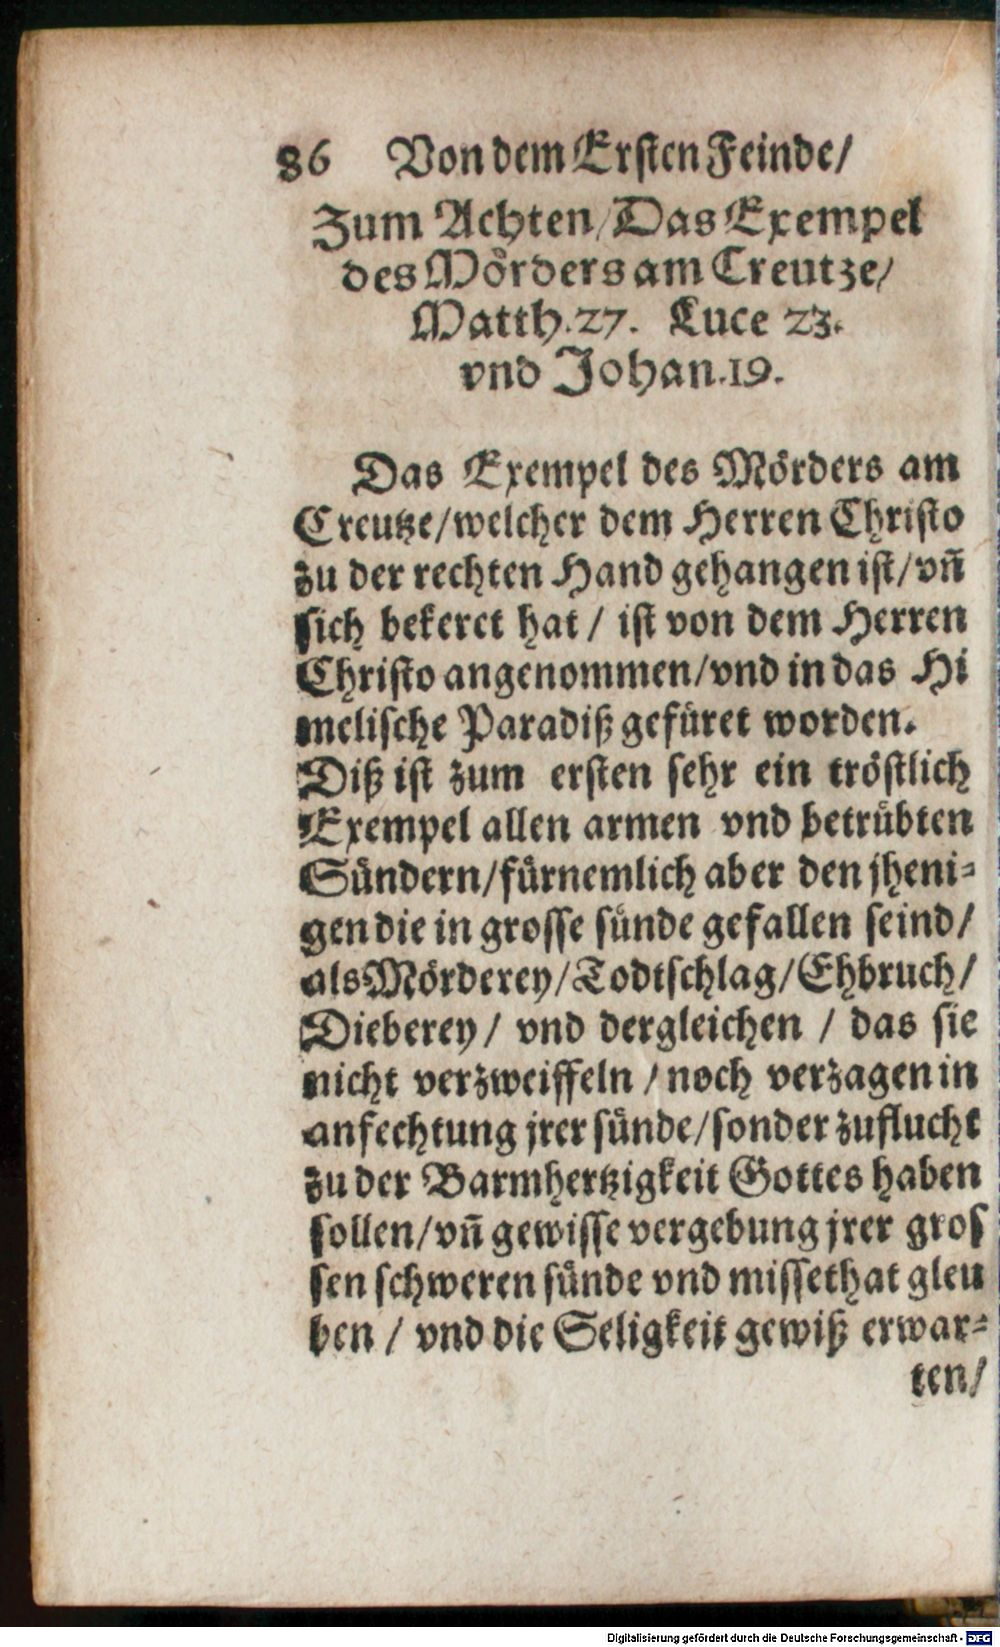 86 Von dem Ersten Feinde/
Zum Achten/Das Exempel
des Mörders am Creutze/
Matth.27. Luce 23.
vnd Johan.19.
Das Exempel des Mörders am
Creutze/welcher dem Herren Christo
zu der rechten Hand gehangen ist/vñ
sich bekeret hat / ist von dem Herren
Christo angenommen/vnd in das Hi
melische Paradiß gefüret worden.
Diß ist zum ersten sehr ein tröstlich
Exempel allen armen vnd betrübten
Sündern/fürnemlich aber den jheni-
gen die in grosse sünde gefallen seind/
als Mörderey/Todtschlag/Ehbruch/
Dieberey/ vnd dergleichen / das sie
nicht verzweiffeln / noch verzagen in
anfechtung jrer sünde/sonder zuflucht
zu der Barmhertzigkeit Gottes haben
sollen/vñ gewisse vergebung jrer gros
sen schweren sünde vnd missethat gleu
ben / vnd die Seligkeit gewiß erwar-
ten/
Digitalisierung gefördert durch die Deutsche Forschungsgemeinschaft - DFG